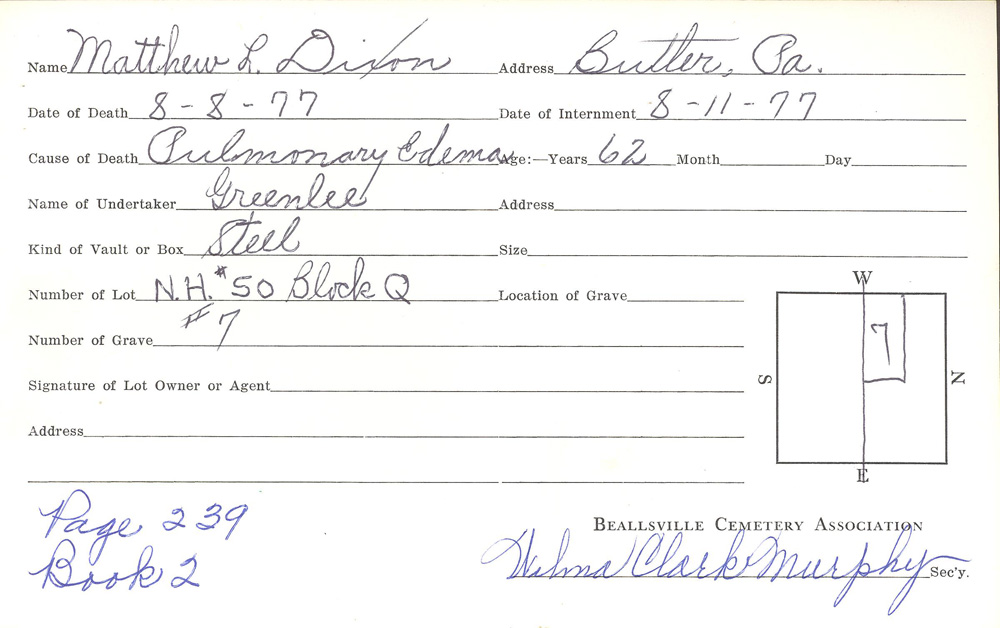 Name Matthew L. Dixon Address Butler, Pa.
Date of Death 8-8-77 Date of Internment 8-11-77
Cause of Death Pulmonary Edema Age:—Years 62 Month Day
Name of Undertaker Greenlee Address
Kind of Vault or Box Steel Size
Number of Lot N.H. #50 Block Q Location of Grave
Number of Grave #7
Signature of Lot Owner or Agent
Address
W
7
S
N
E
Page 239
Book 2
BEALLSVILLE CEMETERY ASSOCIATION
Wilma Clark Murphy Sec'y.